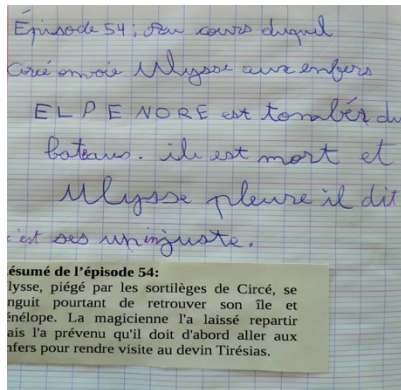 Épisode 54 : Au cours duquel
Circé envoie Ulysse aux enfers
ELPENORE est tombér du
bateaus. ile est mort et
Ulysse pleure il dit
c'est ses uninjuste.
ésumé de l'épisode 54:
lysse, piégé par les sortilèges de Circé, se
nguit pourtant de retrouver son île et
énélope. La magicienne l'a laissé repartir
ais l'a prévenu qu'il doit d'abord aller aux
nfers pour rendre visite au devin Tirésias.